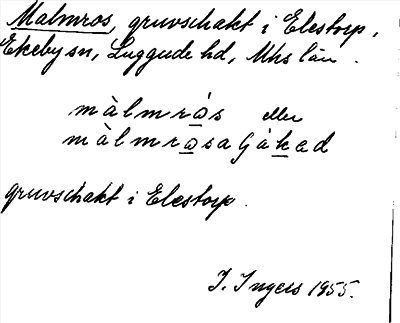 Malmros, gruvschakt i Elestorp,
Ekeby sn, Luggude hd, Mhs län.
màlmrås eller
màlmråsaʃákad
gruvschakt i Elestorp.
I. Ingers 1955.